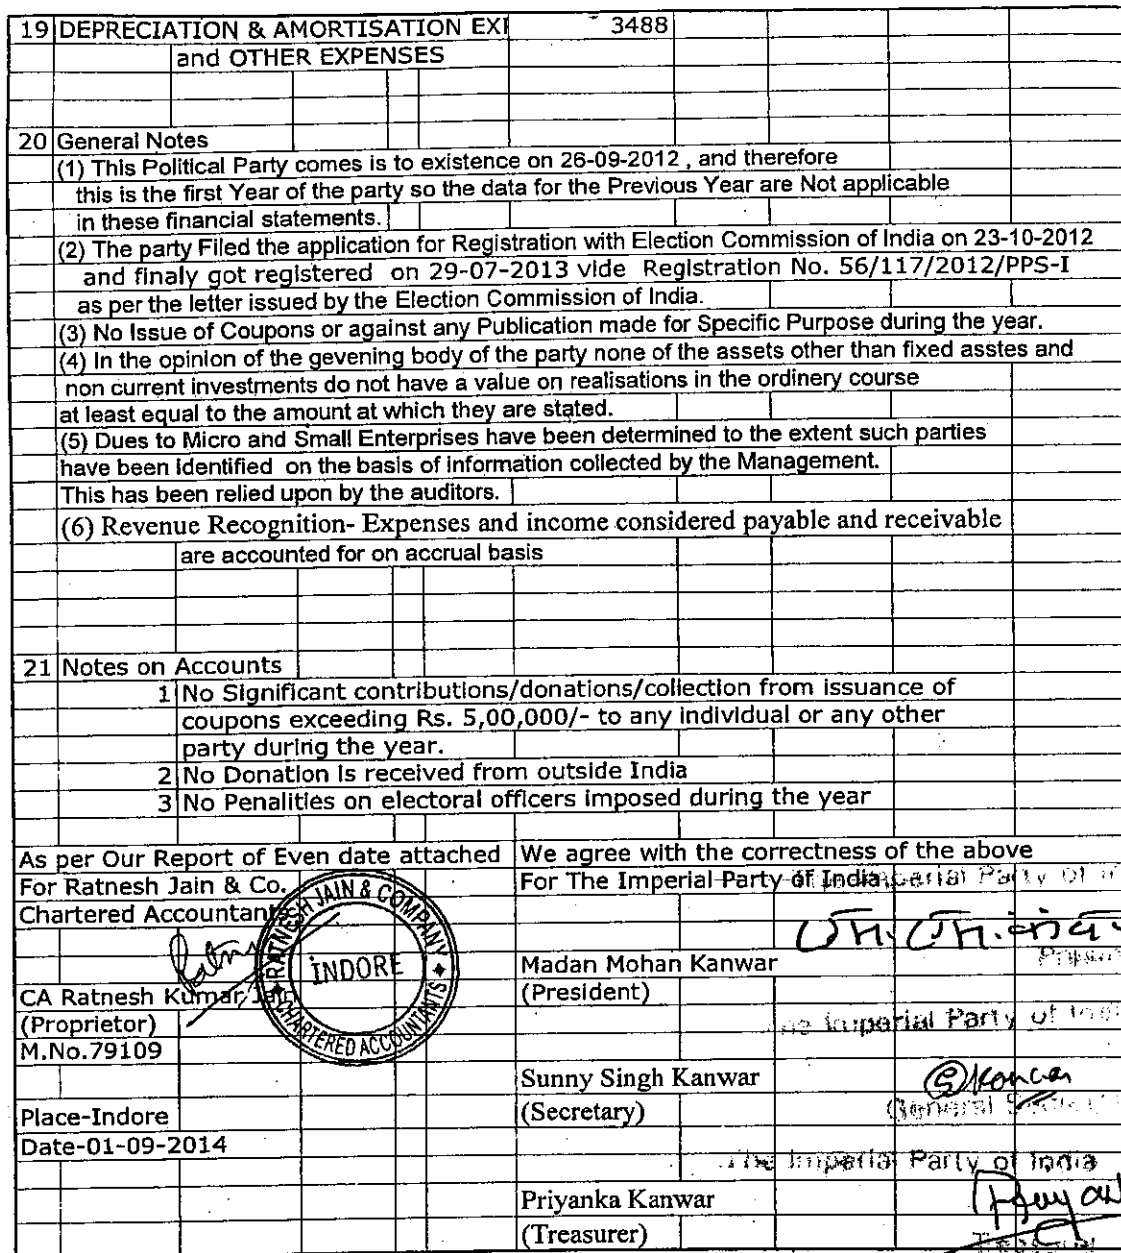 19 DEPRECIATION & AMORTISATION EXI 3488
and OTHER EXPENSES
20 General Notes
(1) This Political Party comes is to existence on 26-09-2012 , and therefore
this is the first Year of the party so the data for the Previous Year are Not applicable
in these financial statements.
(2) The party Filed the application for Registration with Election Commission of India on 23-10-2012
and finaly got registered on 29-07-2013 vide Registration No. 56/117/2012/PPS-I
as per the letter issued by the Election Commission of India.
(3) No Issue of Coupons or against any Publication made for Specific Purpose during the year.
(4) In the opinion of the gevening body of the party none of the assets other than fixed asstes and
non current investments do not have a value on realisations in the ordinery course
at least equal to the amount at which they are stated.
(5) Dues to Micro and Small Enterprises have been determined to the extent such parties
have been identified on the basis of information collected by the Management.
This has been relied upon by the auditors.
(6) Revenue Recognition- Expenses and income considered payable and receivable
are accounted for on accrual basis
21 Notes on Accounts
1 No Significant contributions/donations/collection from issuance of
coupons exceeding Rs. 5,00,000/- to any individual or any other
party during the year.
2 No Donation is received from outside India
3 No Penalities on electoral officers imposed during the year
As per Our Report of Even date attached We agree with the correctness of the above
For Ratnesh Jain & Co. For The Imperial Party of India
Chartered Accountants
RATNESH JAIN & COMPANY
INDORE
CHARTERED ACCOUNTANTS
Madan Mohan Kanwar
CA Ratnesh Kumar Jain (President)
(Proprietor) The Imperial Party of India
M.No.79109
Sunny Singh Kanwar
Place-Indore (Secretary) General
Date-01-09-2014
The Imperial Party of India
Priyanka Kanwar
(Treasurer)